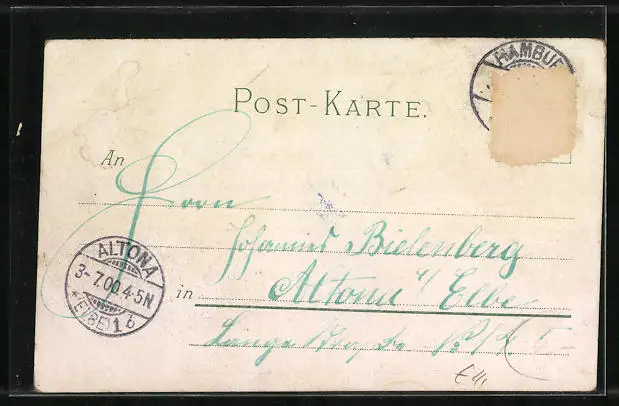 HAMBU
POST-KARTE.
An
Herrn
Johannes Bielenberg
in Altona a/ Elbe
Lange Straße
ALTONA
3-7.00.4-5N
*(ELBE)1b